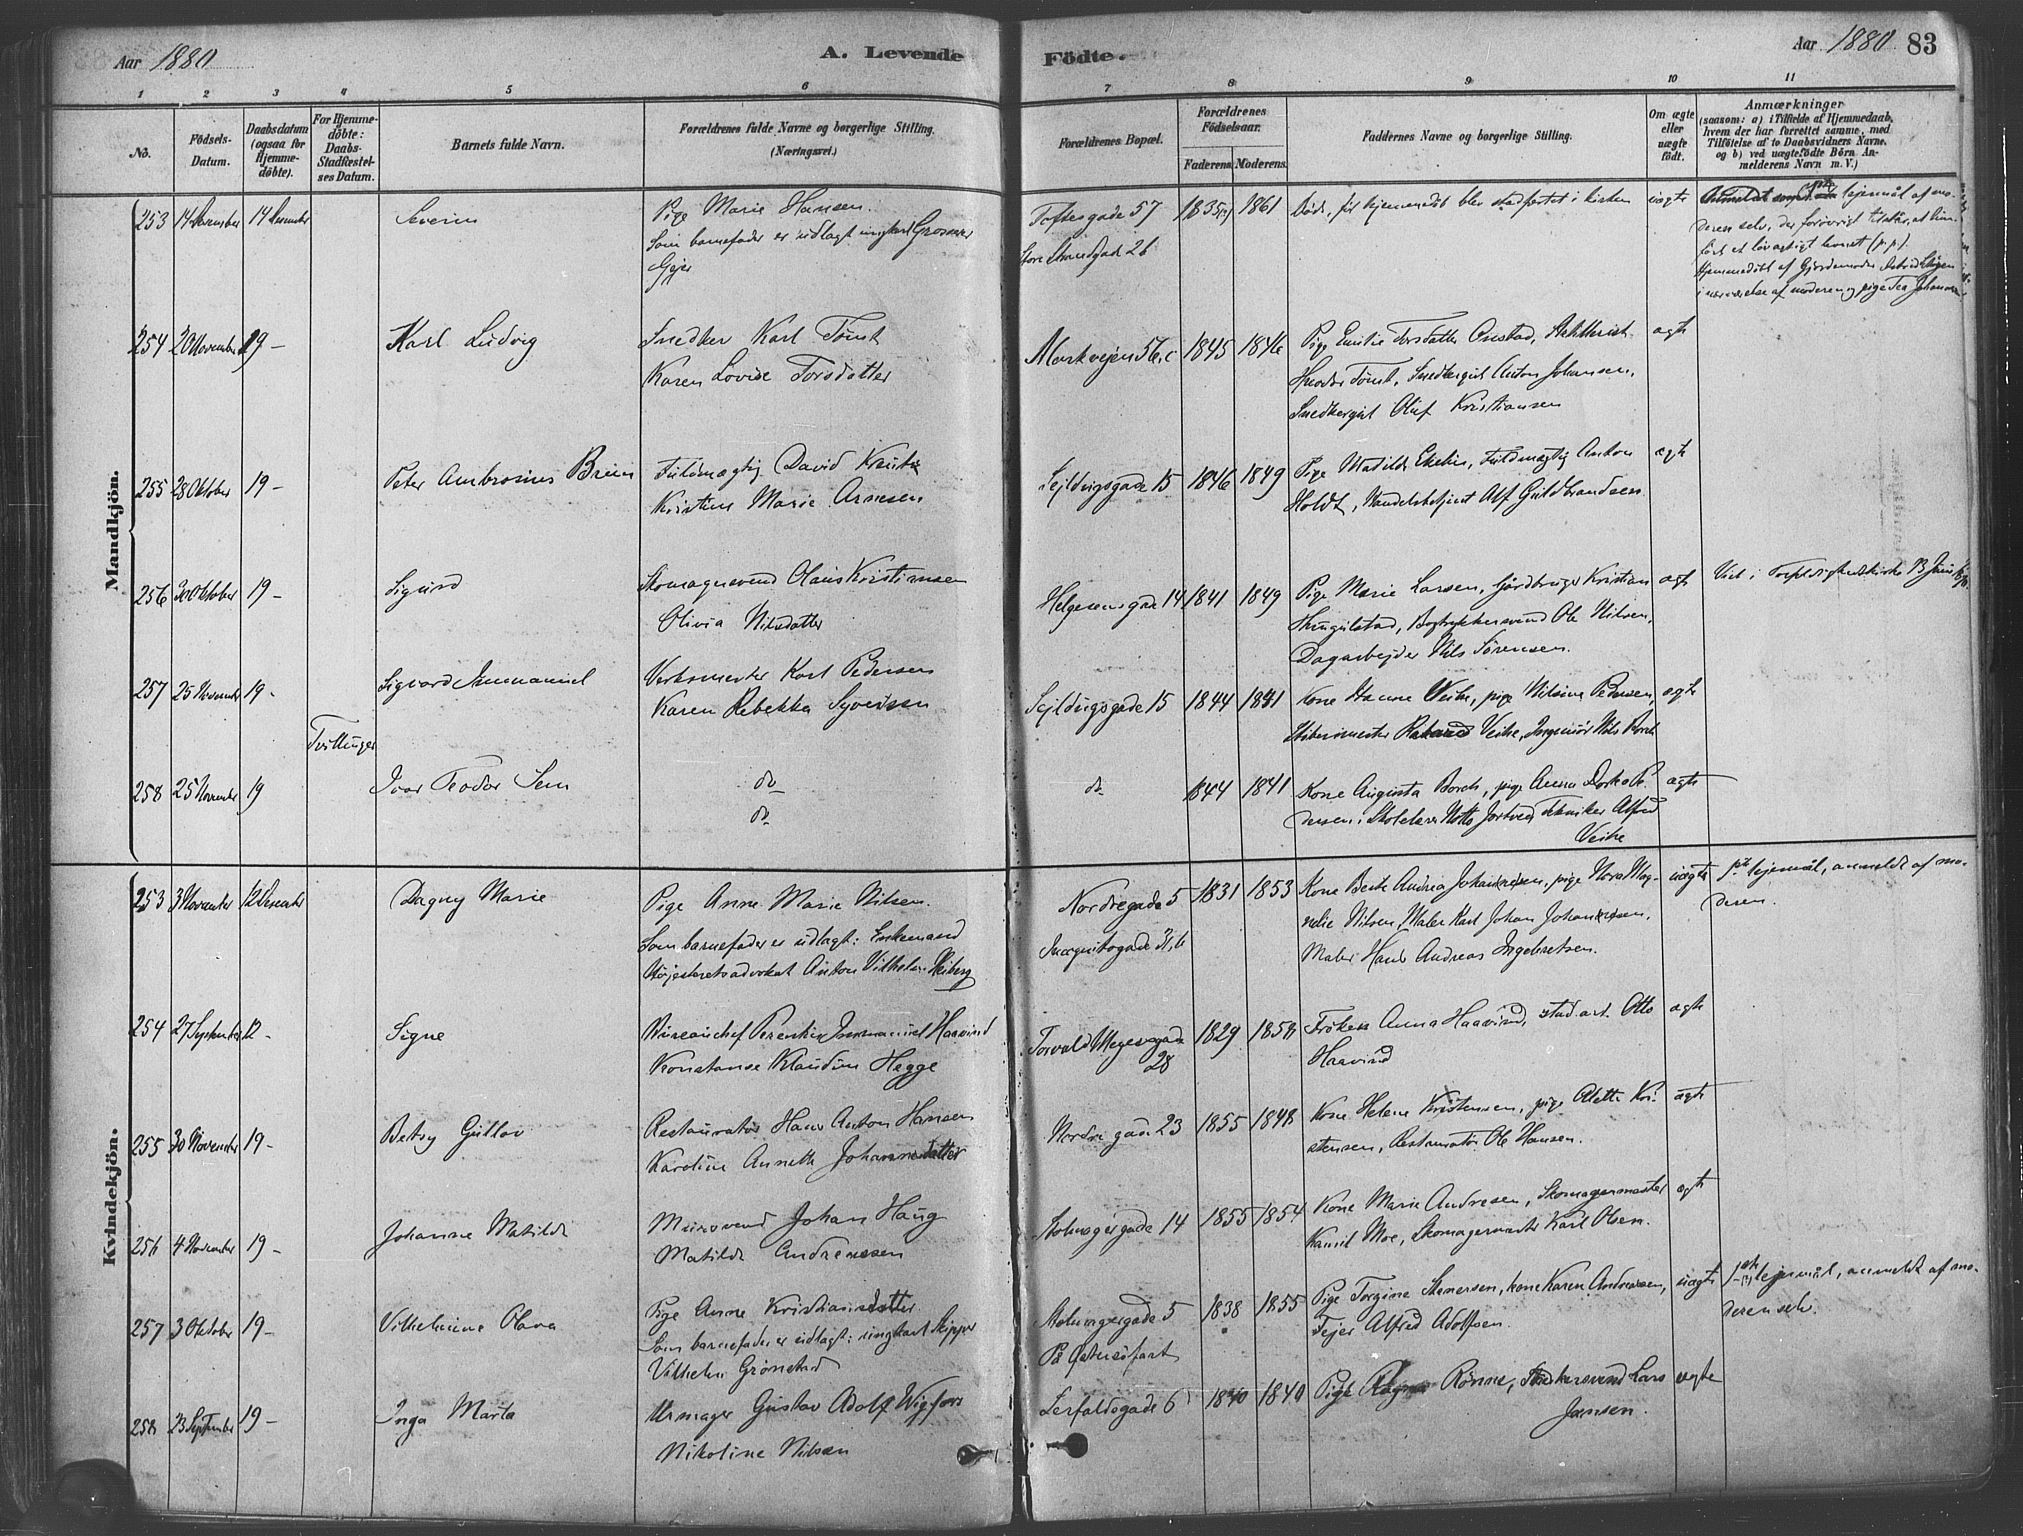 Aar 1880
A. Levende
Födte.
Aar 1880
83
1 2 3 4 5 6 7 8 9 10 11
No.
Födsels-
Datum.
Daabsdatum
(ogsaa for
Hjemme-
döbte).
For Hjemme-
döbte:
Daabs-
Stadfæstel-
ses Datum.
Barnets fulde Navn.
Forældrenes fulde Navne og borgerlige Stilling.
(Næringsvei.)
Forældrenes Bopæl.
Forældrenes
Födselsaar.
Faderens. Moderens.
Faddernes Navne og borgerlige Stilling.
Om ægte
eller
uægte
födt.
Anmærkninger
(saasom: a) i Tilfælde af Hjemmedaab,
hvem der har forrettet samme, med
Tilföielse af to Daabsvidners Navne,
og b) ved uægtefödte Börn An-
melderens Navn m. V.)
Mandkjön.
253 14 December 14 December Severin
Pige Marie Hansen.
Som barnefader er udlagt ungkarl
Toftesgade 57 1835 1861 Död, før hjemmedåb blev stadfestet i kirken uægte
lejemål af mo-
deren selv, der forøvrigt tilstår, at hun
ført et løsagtigt levnet (p.p).
Hjemmedöbt af Gjordemoder
i nærværelse af moderen og pige Tea
254 20 November 19 – Karl Ludvig
Snedker Karl Tømt
Karen Lovise Torsdatter
Markvejen 56, c 1845 1846
Pige Emilie Torsdatter
Teodor Tømt, Snedkergut Anton Johansen,
Snedkergut Oluf Kristiansen
ægte
255 28 Oktober 19 – Peter Ambrosius
Fuldmægtig David
Kristine Marie Arnesen
Sejldugsgade 15 1846 1849
Pige Matilde Fuldmægtig Anton
Holdt, Handelsbetjent Alf Guldbrandsen
ægte
256 30 Oktober 19 – Sigurd
Skomagersvend Olaus Kristiansen
Olivia Nilsdatter
Helgesensgade 14 1841 1849
Pige Marie Larsen, Gårdbruger Kristian
Bogtrykkersvend Ole Nilsen,
Dagarbejder Nils Sørensen.
ægte
257 25 November 19 – Sigvard Immanuel
Verksmester Karl Pedersen
Karen Rebekka Syversen
Sejldugsgade 15 1844 1841
Kone Hanna Veihe, pige Nilsine Pedersen,
Veihe, Ingeniør Nils Borch
ægte
Tvillinger
258 25 November 19 Ivar Teodor Sem
do
do
do 1844 1841
Kone Augusta Borch, pige Anna Dorthea Pe-
dersen, Skolelærer Tekniker Alfred
Veihe
ægte
Kvindekjön.
253 3 November 12 December Dagny Marie
Pige Anne Marie Nilsen.
Som barnefader er udlagt: Enkemand
Højesteretsadvokat Anton Vilhelm
Nordregade 5 1831 1853
Kone Berte Andrea Johannesen, pige Nora Mag-
nelie Nilsen, Maler Karl Johan Johannesen,
Maler Hans Andreas Ingebretsen.
uægte
1ste lejemål, anmeldt af mo-
deren.
254 27 September 12 – Signe
Bureauchef Immanuel Haavind
Konstanse Klaudine Hegge
Torvald Meyersgade
28
1829 1858
Frøken Anna Haavind, stud. art. Otto
Haavind
ægte
255 30 November 19 – Betsy Gullov
Restauratør Hans Anton Hansen
Karoline Annette Johannesdatter
Nordregade 23 1855 1848
Kone Helene Kristensen, pige Alette Kri-
stensen, Restauratør Ole Hansen.
ægte
256 4 November 19 – Johanne Matilde
Mursvend Johan Haug
Matilde Andreassen
Skomagergade 14 1855 1854
Kone Marie Andresen, Skomagermester
Kamil Moe, Skomagermester Karl Olsen.
ægte
257 3 Oktober 19 – Vilhelmine Olava
Pige Anne Kristiansdatter
Som barnefader er udlagt: ungkarl Skipper
Vilhelm Grønstad
Skomagergade 5 1838 1855
På Østersøfart
Pige Torgine Stenersen, kone Karen Andreassen,
Fejer Alfred Adolfsen.
uægte
1ste lejemål, anmeldt af mo-
deren selv.
258 23 September 19 – Inga Marta
Urmager Gustav Adolf Wigfors
Nikoline Nilsen
Lerfaldsgade 6 1840 1840
Pige Ragna Rønne, Snekkersvend Lars
Jansen.
ægte